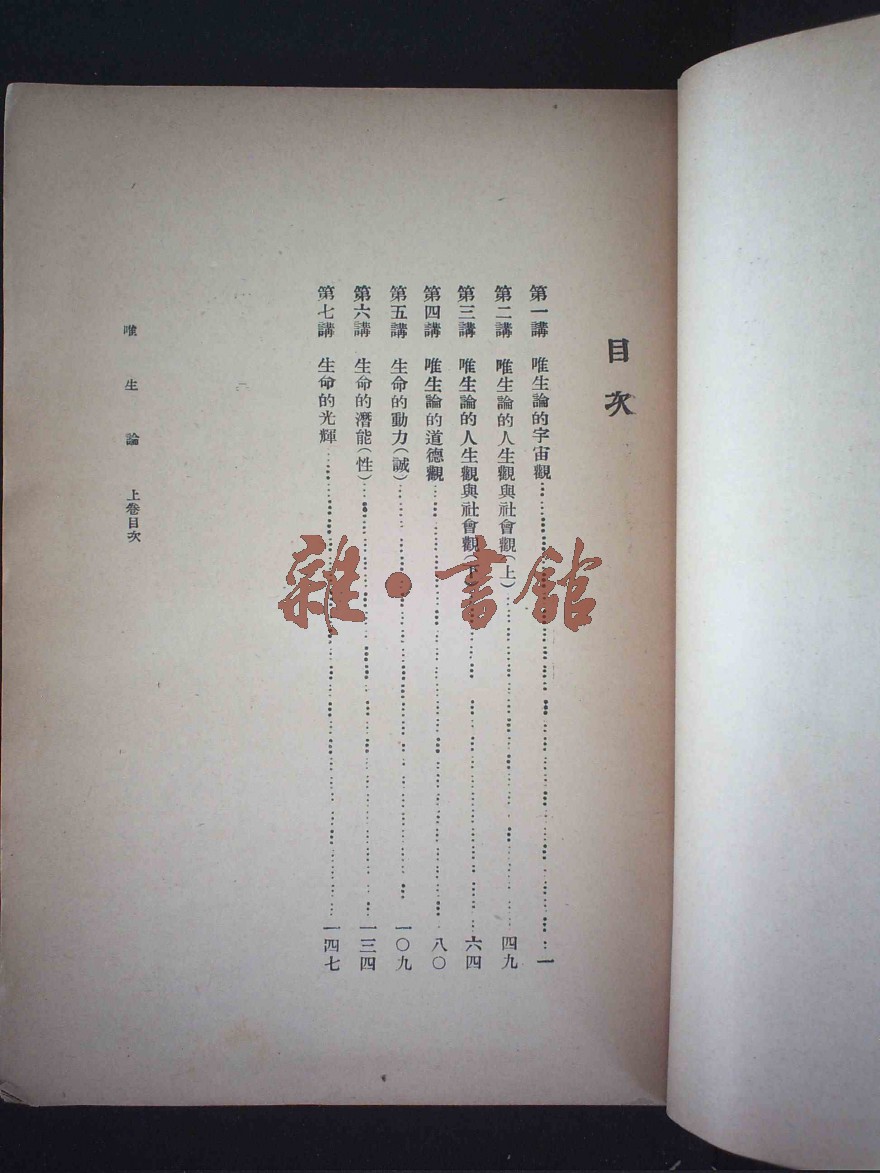 目次
第一講 唯生論的宇宙觀……一
第二講 唯生論的人生觀與社會觀(上)……四九
第三講 唯生論的人生觀與社會觀(下)……六四
第四講 唯生論的道德觀……八〇
第五講 生命的動力(誠)……一〇九
第六講 生命的潛能(性)……一三四
第七講 生命的光輝……一四七
唯生論 上卷目次
雜·書館